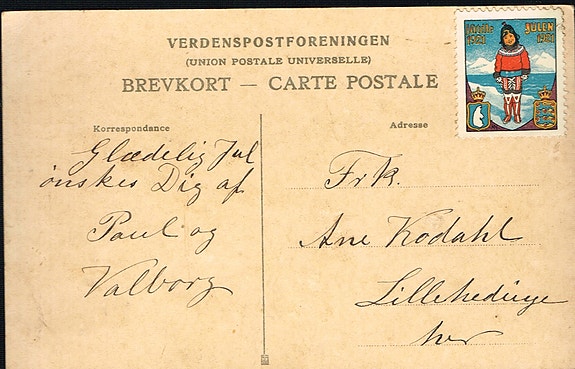 VERDENSPOSTFORENINGEN
(UNION POSTALE UNIVERSELLE)
BREVKORT — CARTE POSTALE
JULEN
1921 1921
Korrespondance
Adresse
Glædelig Jul
ønskes Dig af
Paul og
Valborg
Frk.
Ane Kodahl
Lillehedinge
her